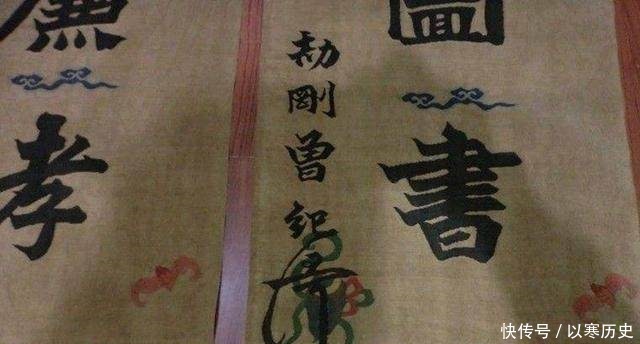 圖書
劼剛曾紀
廉孝
快传号/以寒历史